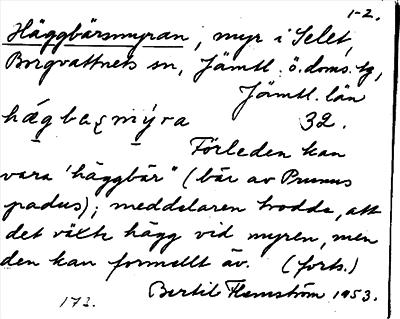 1-2.
Häggbärsmyran, myr i Selet,
Borgvattnets sn, Jämtl. ö. doms. tg,
Jämtl. län
hä̱gbaʂmy̱ra 32.
Förleden kan
vara "häggbär" (bär av Prunus
padus); meddelaren trodde, att
det växte hägg vid myren, men
den kan formellt äv. (forts.)
Bertil Flemström 1953.
173.